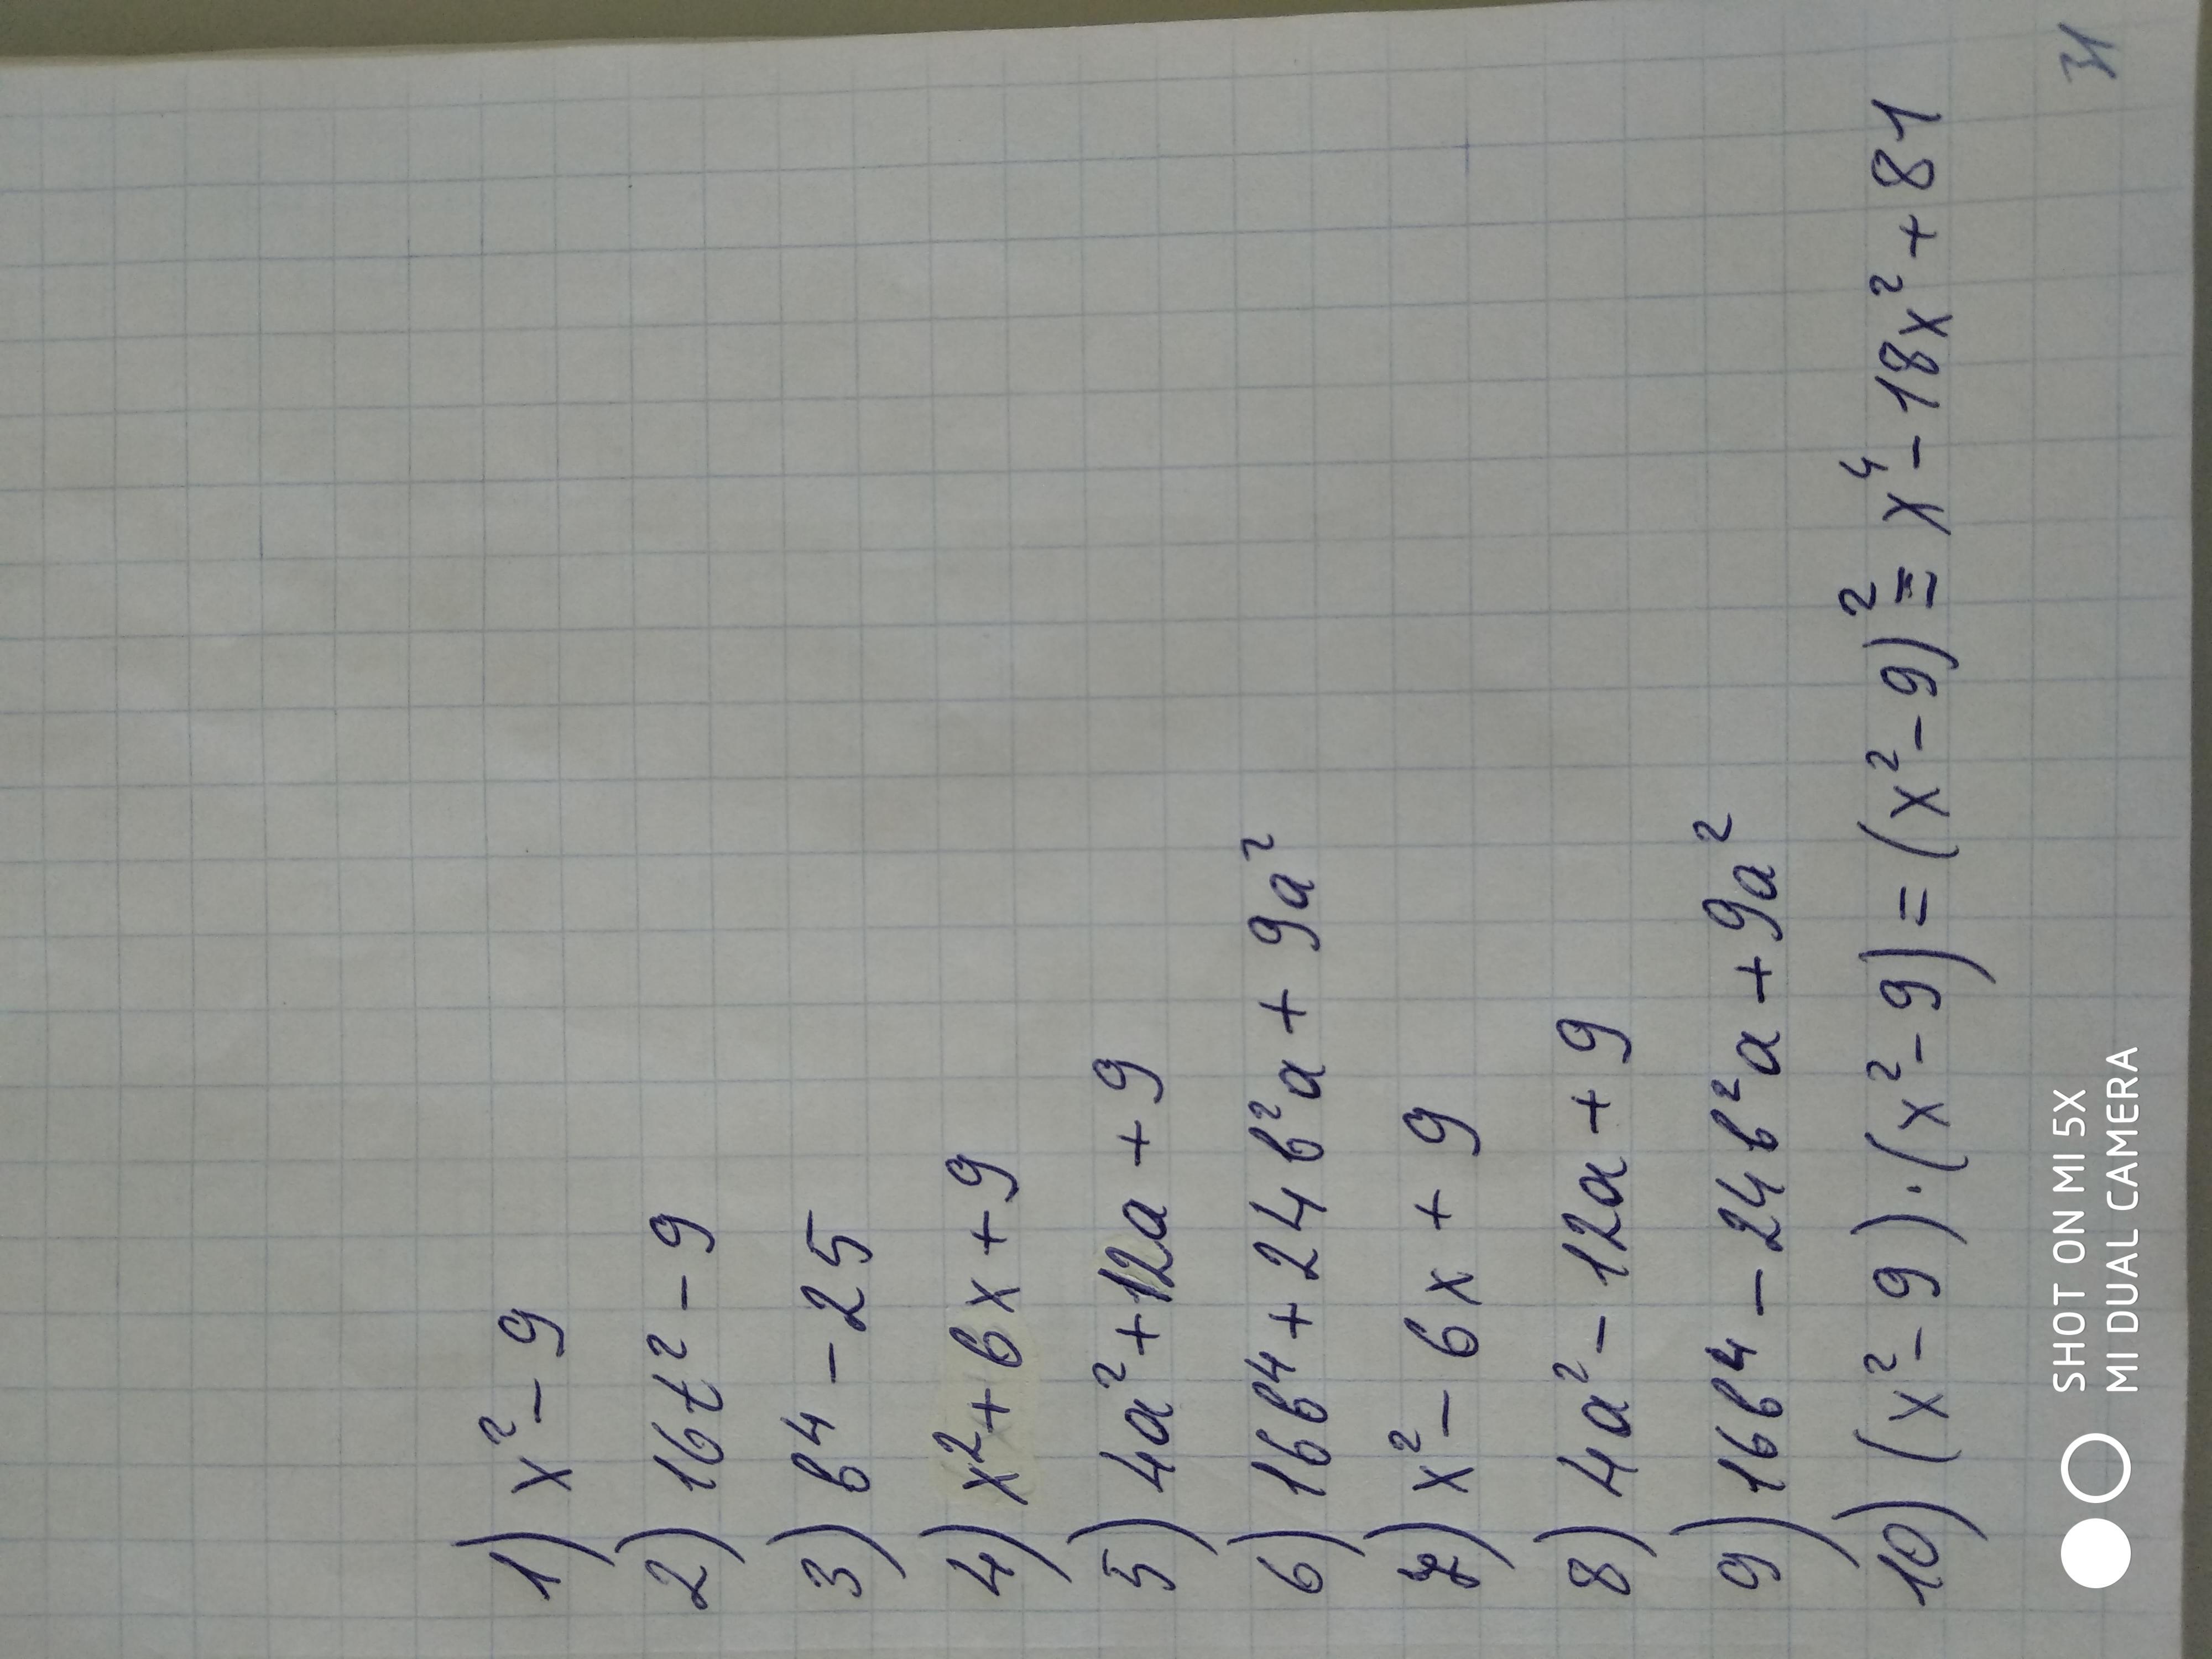 1) x² - 9
2) 16t² - 9
3) в⁴ - 25
4) x² + 6x + 9
5) 4a² + 12a + 9
6) 16в⁴ + 24в²a + 9a²
7) x² - 6x + 9
8) 4a² - 12a + 9
9) 16в⁴ - 24в²a + 9a²
10) (x² - 9)·(x² - 9) = (x² - 9)² = x⁴ - 18x² + 81
SHOT ON MI 5X
MI DUAL CAMERA